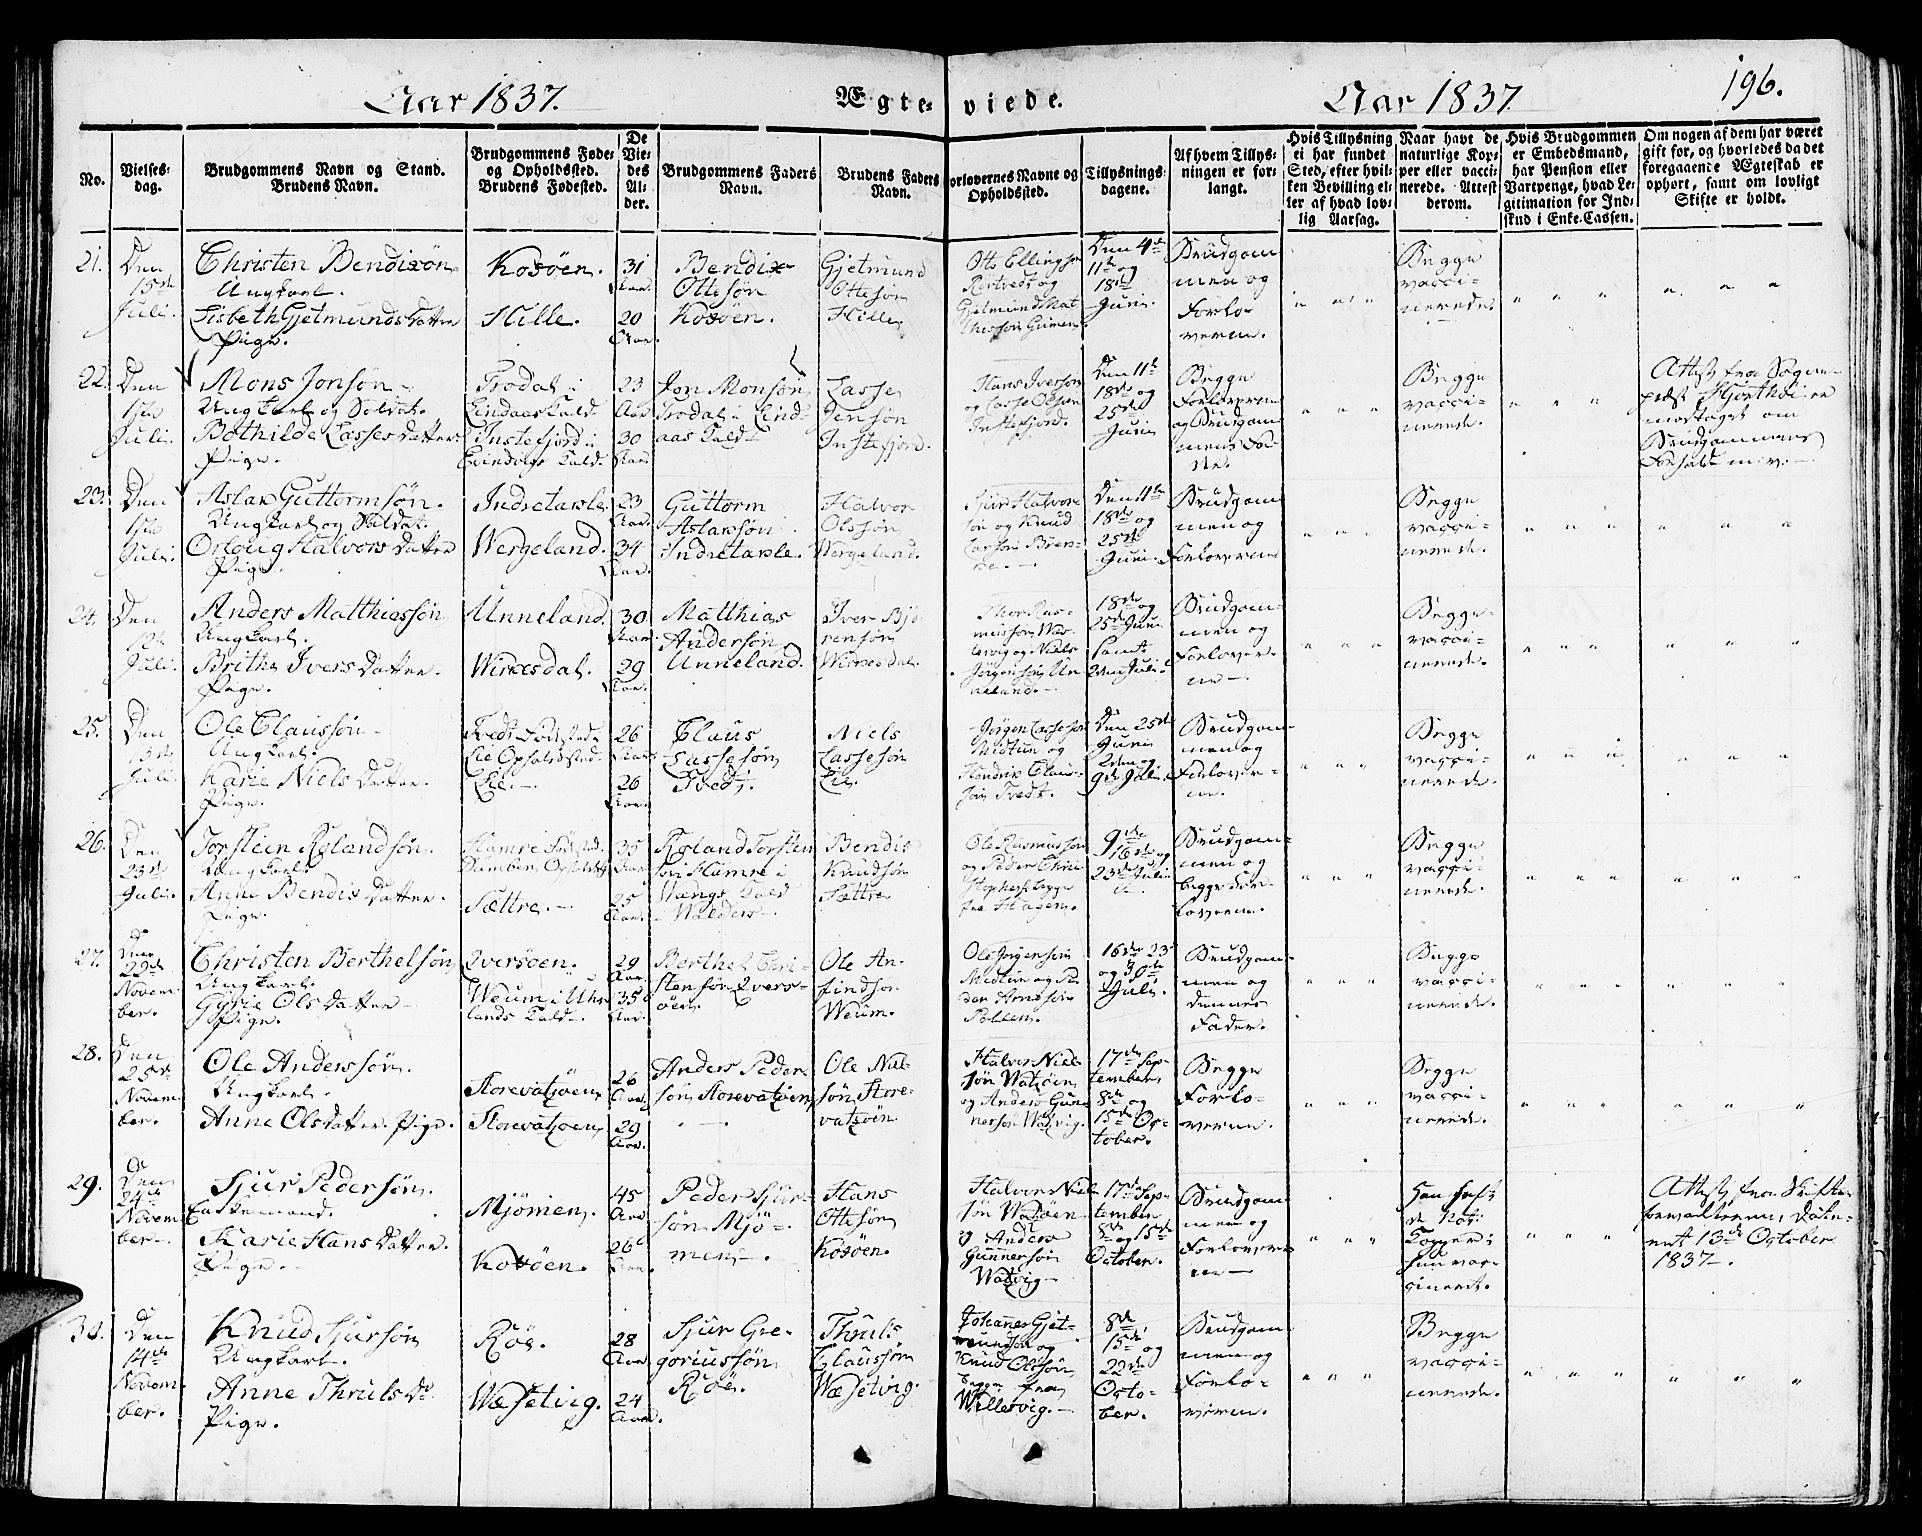 Aar 1837.
Ægteviede.
Aar 1837
196.
No.
Vielsesdag.
Brudgommens Navn og Stand.
Brudens Navn.
Brudgommens Føde-
og Opholdssted.
Brudens Fødested.
De
Vie-
des
Al-
der.
Brudgommens Faders
Navn.
Brudens Faders
Navn.
orlovernes Navne og
Opholdssted.
Tillysnings-
dagene.
Af hvem Tillys-
ningen er for-
langt.
Hvis Tillysning
ei har fundet
Sted, efter hvil-
ken Bevilling el-
ler af hvad lov-
lig Aarsag.
Naar havt de
naturlige Kop-
per eller vacci-
nerede. Attest
derom.
Hvis Brudgommen
er Embedsmand,
har Pension eller
Vartpenge, hvad Le-
gitimation for Ind-
skud i Enke-Cassen.
Om nogen af dem har været
gift før, og hvorledes da det
foregaaende Ægteskab er
ophørt, samt om lovligt
Skifte er holdt.
21.
Den
15de
Juli.
Christen Bendixøn
Ungkarl.
Lisbeth Gjetmunds Datter
Pige.
Koxøen.
Hille.
31
Aar.
20
Aar.
Bendix
Ottesøn
Koxøen.
Gjetmund
Ottesøn
Hille
Otto Ellingsøn
Gjetmund Mat
Den 4de
11te og
18de
Juni.
Brudgom
men og
Forlo-
verne.
Begge
vacci-
nerede.
22.
Den
Juli.
Mons Jonsøn
Ungkarl og Soldat.
Bothilde Lasses Datter
Pige.
Trodal i
Lindaas Kald.
Instefjord i
Evindvigs Kald.
23
Aar
30
Aar.
Jon Monsøn
Trodal i Lind-
aas Kald
Lasse
Instefjord.
Hans Iversøn
og Lasse Olsøn
Instefjord.
Den 11te
18de og
25de
Juni
Begge
Forloverne
og Brudgom
mens
Begge
vacci-
nerede.
Attest fra Sogne-
præst Hjorthøi er
modtaget om
Brudgommens
Forhold m. v.
23.
Den
Juli.
Aslax Guttormsøn.
Ungkarl og Soldat.
Orloug Halvors Datter
Pige.
Indretarsle
Wergeland.
23
Aar.
34
Aar.
Guttorm
Aslaxsøn
Indretarsle.
Halvor
Olssøn
Wergeland.
Sjur Halvor-
søn og Knud
Den 11te
18de og
25de
Juni.
Brudgom
men og
Forloverne
Begge
vacci-
nerede.
24.
Den
Juli.
Anders Matthiassøn
Ungkarl.
Brithe Ivers Datter.
Pige.
Unneland.
Wirkesdal.
30
Aar.
29
Aar.
Matthias
Andersøn
Unneland.
Iver Bjø-
rensøn
Wirkesdal.
18de og
25de Juni
samt
2den Juli.
Brudgom-
men og
Forlover-
ne
Begge
vacci-
nerede.
25.
Den
Juli.
Ole Claussøn
Ungkarl.
Karie Niels Datter.
Pige.
Tvedt Fødested.
Lie Opholdsted.
Lie.
26
Aar
26
Aar.
Claus
Lassesøn
Tvedt.
Niels
Lassesøn
Lie.
Jørgen Lassesøn
Midtun og
Hendrix Claus-
søn Tvedt.
Den 25de
Juni
2den og
9de Juli.
Brudgom-
men og
Forlover-
ne.
Begge
vacci-
nerede.
26.
Den
23de
Juli.
Torstein Roland søn.
Ungkarl.
Anne Bendix Datter.
Pige.
Hamre Fødsted.
Sættre.
35
Aar
25
Aar.
Roland Torstein
søn Hamre i
Wangs Kald
Walders
Bendix
Knudsøn
Sættre
Ole Rasmussøn
og Peder Chri-
fra Hagen.
9de
16de og
23de Juli
Brudgom-
men og
begge For-
loverne.
Begge
vacci-
nerede.
27.
Den
22de
Novem
ber.
Christen Berthelsøn
Ungkarl.
Gjørie Ols Datter
Pige.
Qversøen.
Weum i Uhr
lands Kald.
29
Aar.
35
Aar.
Berthel Chri-
stensøn Qvers-
øen.
Ole An-
findsøn
Weum.
Ole Jørgensøn
Midtun og Pe
der Arndsøn
Pollen.
16de 23
og 30de
Juli.
Brudgom-
men og
dennes
Fader.
Begge
vacci-
nerede.
28.
Den
25de
Novem
ber.
Ole Anderssøn.
Ungkarl.
Anne Ols datter. Pige.
Storevatzøen
Storevatzøen
26
Aar.
29
Aar.
Anders Peder
søn Storevatzøen
Ole Niel-
søn Store-
vatzøen
Halvor Niel
søn Watzøen
og Anders Gun-
nersøn Watzvig.
17de Sep-
tember
8de og
15de Oc-
tober.
Begge
Forlo-
verne.
Begge
vacci-
nerede.
29.
Den
24de
Novem
ber.
Sjur Pedersøn.
Enkemand.
Karie Hans Datter.
Pige.
Mjømen.
Koxøen.
45
Aar.
26
Aar.
Peder Sjur-
søn Mjø-
men
Hans
Ottesøn
Koxøen.
Halvor Niel
søn Watzøen
og Anders
Gunnersøn
Watzvig
17de Sep-
tember
8de og 15de
October.
Brudgom
men og
Forlover-
ne
Han havt
de nat:
Kopper;
hun vac-
cineret.
Attest fra Skifte-
forvalteren, date-
ret 13de October
1837.
30.
Den
14de
Novem
ber.
Knud Sjursøn
Ungkarl.
Anne Thruls Dr
Pige.
Røe.
Wæsetvig.
28
Aar.
24
Aar.
Sjur Gre-
goriussøn
Røe.
Thruls
Claussøn
Wæsetvig.
Johanes Gjet-
mundsøn og
Knud Olssøn
begge fra
Willesvig.
8de
15de og
22de
Octo-
ber.
Brudgom
men og
Forlo-
veren.
Begge
vacci-
nerede.